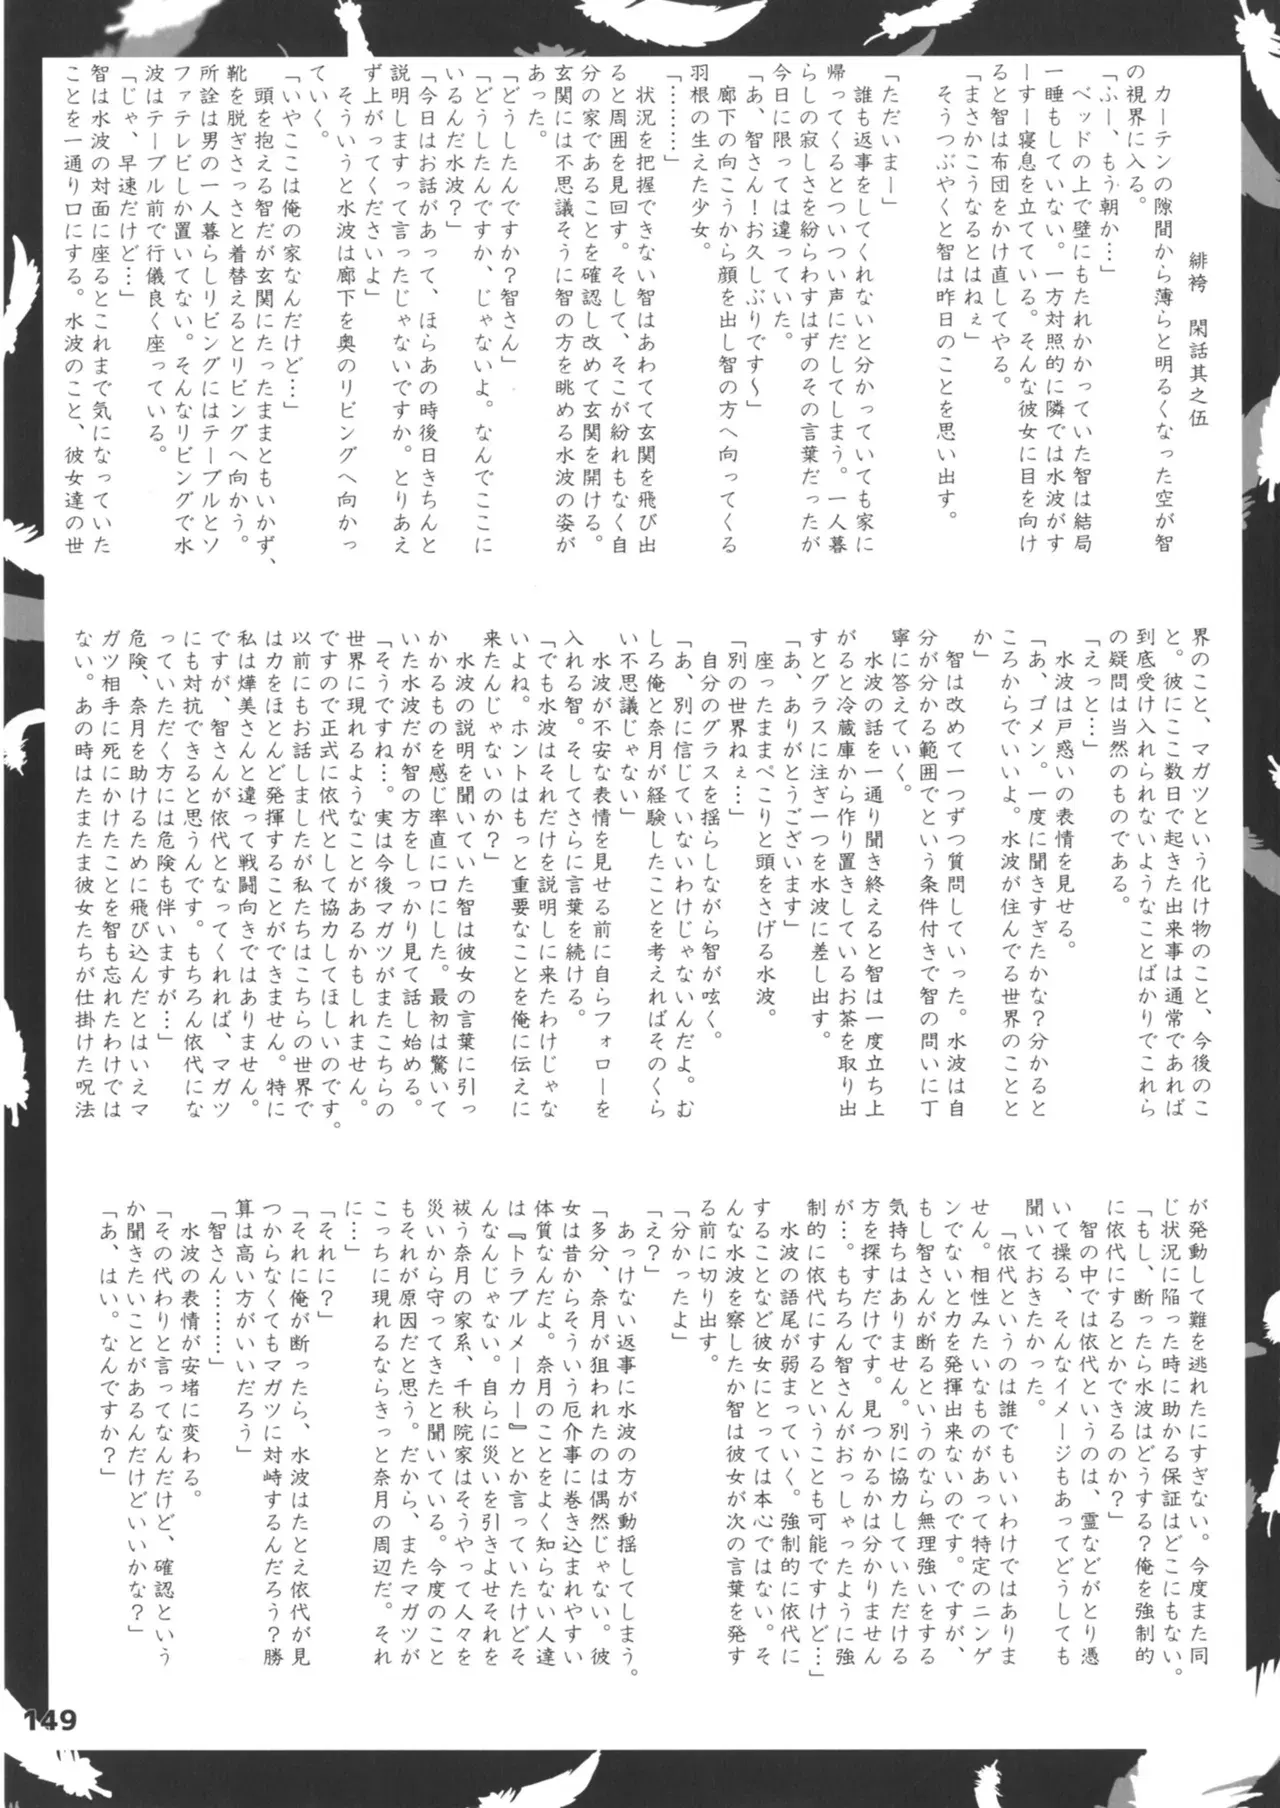 緋袴　閑話其之伍
カーテンの隙間から薄らと明るくなった空が智
の視界に入る。
「ふー、もう朝か…」
ベッドの上で壁にもたれかかっていた智は結局
一睡もしていない。一方対照的に隣では水波がす
ーすー寝息を立てている。そんな彼女に目を向け
ると智は布団をかけ直してやる。
「まさかこうなるとはねぇ」
そうつぶやくと智は昨日のことを思い出す。
「ただいまー」
誰も返事をしてくれないと分かっていても家に
帰ってくるとついつい声にだしてしまう。一人暮
らしの寂しさを紛らわすはずのその言葉だったが
今日に限っては違っていた。
「あ、智さん！お久しぶりです～」
廊下の向こうから顔を出し智の方へ向ってくる
羽根の生えた少女。
「………」
状況を把握できない智はあわてて玄関を飛び出
ると周囲を見回す。そして、そこが紛れもなく自
分の家であることを確認し改めて玄関を開ける。
玄関には不思議そうに智の方を眺める水波の姿が
あった。
「どうしたんですか？智さん」
「どうしたんですか、じゃないよ。なんでここに
いるんだ水波？」
「今日はお話があって、ほらあの時後日きちんと
説明しますって言ったじゃないですか。とりあえ
ず上がってくださいよ」
そういうと水波は廊下を奥のリビングへ向かっ
ていく。
「いやここは俺の家なんだけど…」
頭を抱える智だが玄関にたったままともいかず、
靴を脱ぎさっさと着替えるとリビングへ向かう。
所詮は男の一人暮らしリビングにはテーブルとソ
ファテレビしか置いてない。そんなリビングで水
波はテーブル前で行儀良く座っている。
「じゃ、早速だけど…」
智は水波の対面に座るとこれまで気になっていた
ことを一通り口にする。水波のこと、彼女達の世
界のこと、マガツという化け物のこと、今後のこ
と。彼にここ数日で起きた出来事は通常であれば
到底受け入れられないようなことばかりでこれら
の疑問は当然のものである。
「えっと…」
水波は戸惑いの表情を見せる。
「あ、ゴメン。一度に聞きすぎたかな？分かると
ころからでいいよ。水波が住んでる世界のことと
か」
智は改めて一つずつ質問していった。水波は自
分が分かる範囲でという条件付きで智の問いに丁
寧に答えていく。
水波の話を一通り聞き終えると智は一度立ち上
がると冷蔵庫から作り置きしているお茶を取り出
すとグラスに注ぎ一つを水波に差し出す。
「あ、ありがとうございます」
座ったままぺこりと頭をさげる水波。
「別の世界ねぇ…」
自分のグラスを揺らしながら智が呟く。
「あ、別に信じていないわけじゃないんだよ。む
しろ俺と奈月が経験したことを考えればそのくら
い不思議じゃない」
水波が不安な表情を見せる前に自らフォローを
入れる智。そしてさらに言葉を続ける。
「でも水波はそれだけを説明しに来たわけじゃな
いよね。ホントはもっと重要なことを俺に伝えに
来たんじゃないのか？」
水波の説明を聞いていた智は彼女の言葉に引っ
かかるものを感じ率直に口にした。最初は驚いて
いた水波だが智の方をしっかり見て話し始める。
「そうですね…。実は今後マガツがまたこちらの
世界に現れるようなことがあるかもしれません。
ですので正式に依代として協力してほしいのです。
以前にもお話しましたが私たちはこちらの世界で
は力をほとんど発揮することができません。特に
私は燁美さんと違って戦闘向きではありません。
ですが、智さんが依代となってくれれば、マガツ
にも対抗できると思うんです。もちろん依代にな
っていただく方には危険も伴いますが…」
危険、奈月を助けるために飛び込んだとはいえマ
ガツ相手に死にかけたことを智も忘れたわけでは
ない。あの時はたまたま彼女たちが仕掛けた呪法
が発動して難を逃れたにすぎない。今度また同
じ状況に陥った時に助かる保証はどこにもない。
「もし、断ったら水波はどうする？俺を強制的
に依代にするとかできるのか？」
智の中では依代というのは、霊などがとり憑
いて操る、そんなイメージもあってどうしても
聞いておきたかった。
「依代というのは誰でもいいわけではありま
せん。相性みたいなものがあって特定のニンゲ
ンでないと力を発揮出来ないのです。ですが、
もし智さんが断るというのなら無理強いをする
気持ちはありません。別に協力していただける
方を探すだけです。見つかるかは分かりません
が…。もちろん智さんがおっしゃったように強
制的に依代にするということも可能ですけど…」
水波の語尾が弱まっていく。強制的に依代に
することなど彼女にとっては本心ではない。そ
んな水波を察したか智は彼女が次の言葉を発す
る前に切り出す。
「分かったよ」
「え？」
あっけない返事に水波の方が動揺してしまう。
「多分、奈月が狙われたのは偶然じゃない。彼
女は昔からそういう厄介事に巻き込まれやすい
体質なんだよ。奈月のことをよく知らない人達
は『トラブルメーカー』とか言っていたけどそ
んなんじゃない。自らに災いを引きよせそれを
祓う奈月の家系、千秋院家はそうやって人々を
災いから守ってきたと聞いている。今度のこと
もそれが原因だと思う。だから、またマガツが
こっちに現れるならきっと奈月の周辺だ。それ
に…」
「それに？」
「それに俺が断ったら、水波はたとえ依代が見
つからなくてもマガツに対峙するんだろう？勝
算は高い方がいいだろう」
「智さん………」
水波の表情が安堵に変わる。
「その代わりと言ってなんだけど、確認という
か聞きたいことがあるんだけどいいかな？」
「あ、はい。なんですか？」
149